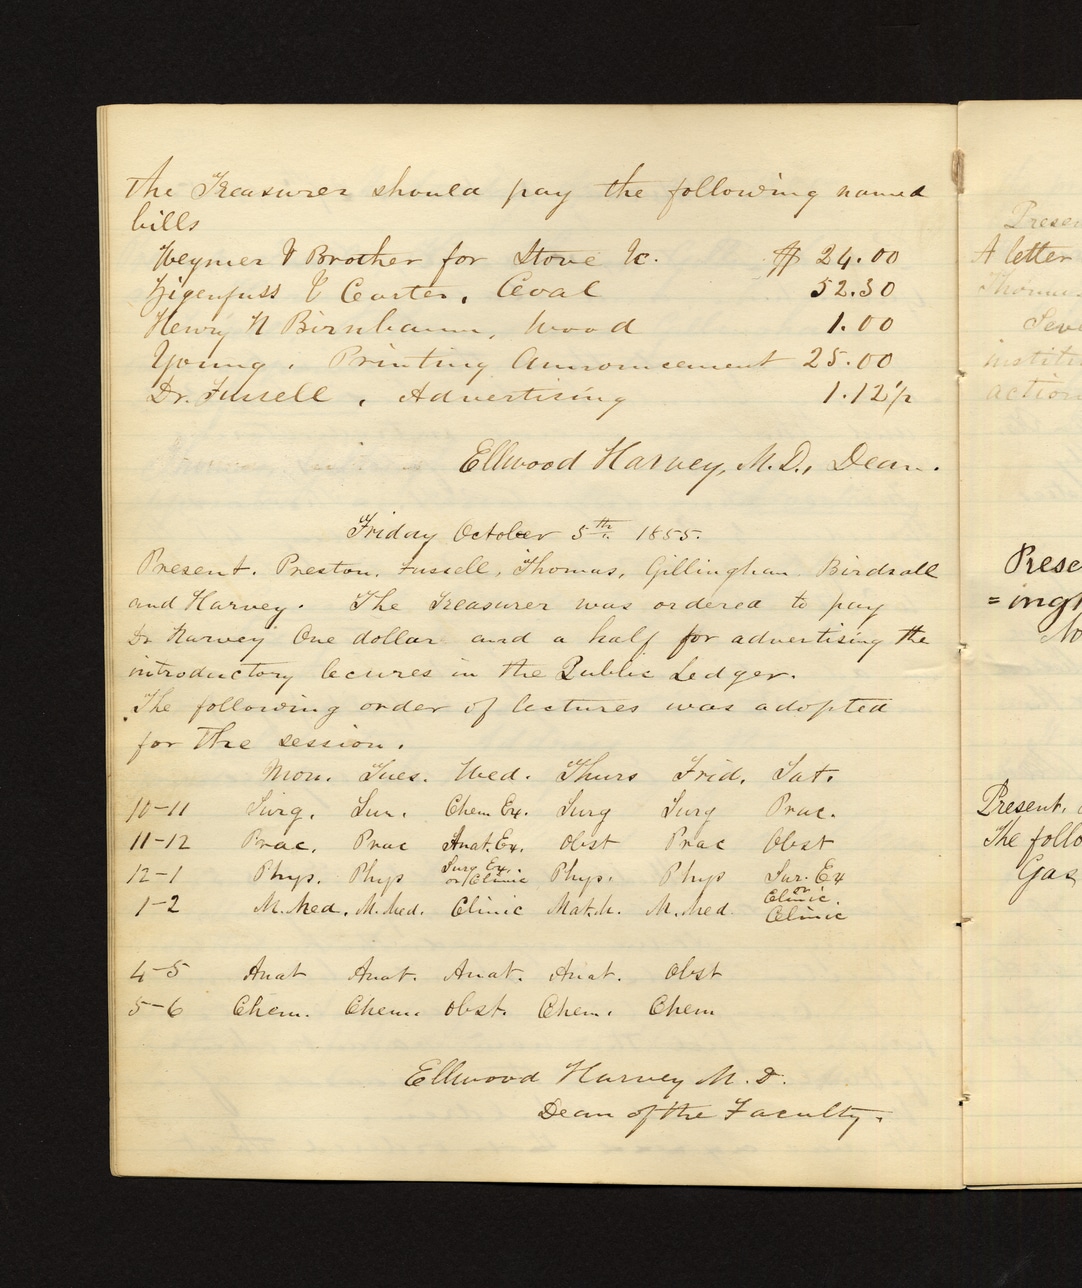 the Treasurer should pay the following named
bills
Weymer & Brother for Stove &c. $ 24.00
Zigenfuss & Carter, Coal 52.30
Henry H Birnbaum, Wood 1.00
Young, Printing Announcement 25.00
Dr. Fussell, Advertising 1.12½
Ellwood Harvey, M.D., Dean.
Friday October 5th. 1855.
Present. Preston, Fussell, Thomas, Gillingham Birdsall
and Harvey. The Treasurer was ordered to pay
Dr Harvey One dollar and a half for advertising the
introductory lecures in the Public Ledger.
The following order of lectures was adopted
for the session.
Mon. Tues. Wed. Thurs Frid. Sat.
10-11 Surg. Sur. Chem. Ex. Surg Surg Prac.
11-12 Prac. Prac Anat. Ex. Obst Prac Obst
12-1 Phys. Phys Surg Ex. or Clinic Phys. Phys Sur. Ex or Clinic.
1-2 M. Med. M. Med. Clinic Mat. M. M. Med. Clinic
4-5 Anat Anat. Anat. Anat. Obst
5-6 Chem. Chem. Obst. Chem. Chem
Ellwood Harvey M. D.
Dean of the Faculty.
A letter
action
Prese
=ing
Present,
The follo
Gas